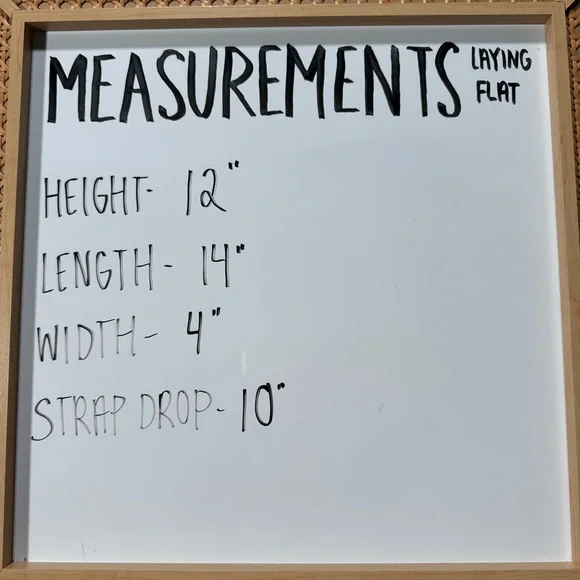 MEASUREMENTS LAYING FLAT
HEIGHT- 12"
LENGTH- 14"
WIDTH- 4"
STRAP DROP- 10"